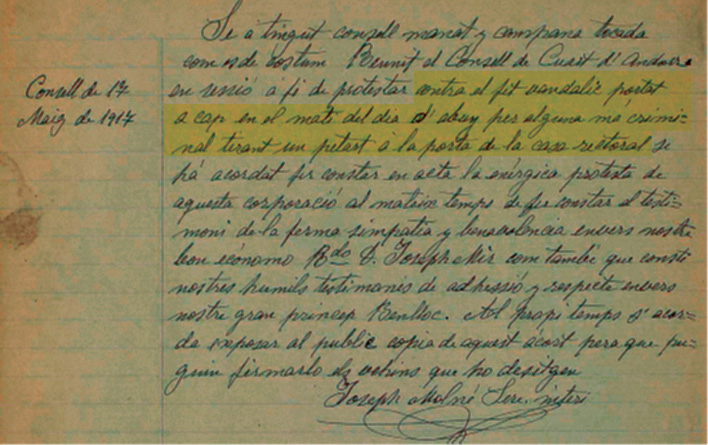 Consell de 17
Maig de 1917
Se á tingut consell manat y campana tocada
com es de costum Reunit el Consell de Cuart d'Andorra
en sessió á fi de protestar contra el fet vandalic portat
a cap en el matí del dia d'abuy per alguna má crimi=
nal tirant un petart á la porta de la casa rectoral se
há acordat fer constar en acta la enérgica protesta de
aquesta corporació al mateix temps de fer constar el testi=
moni de la ferma simpatia y benavolencia envers nostre
bon ecónomo Rdo D. Joseph Mir com també que consti
nostres humils testimonis de adhessió y respecte envers
nostre gran princep Benlloc. Al propi temps s'acor=
da exposar al public copia de aquest ácort pera que pu=
guin firmarlo els vehins que ho desitgen
Joseph Molné Sere. interi